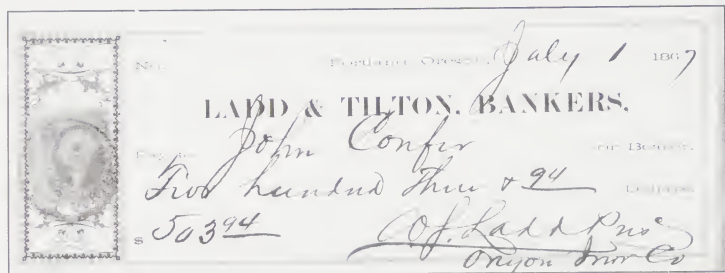 No. Portland, Oregon, July 1 1867
LADD & TILTON, BANKERS,
Pay to John Confer or Bearer,
Five hundred Three & 94 Dollars
$ 503 94
Ladd Pres
Oregon Iron Co